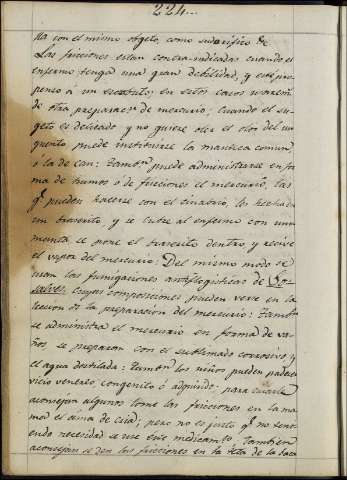 224..
lla con el mismo objeto, como sudorifico &c
Las fricciones estan contra-indicadas cuando el
enfermo tenga una gran debilidad, y esté pro-
penso á un escorbuto; en estos casos usaremos
de otra preparacn. de mercurio; Cuando el su-
geto es delicado y no quiere oler el olor del un-
guento puede instituirse la manteca comun,
ó la de can: Tambn. puede administrarse en for-
ma de humos ó de fricciones el mercurio, las
qe. pueden hacerse con el cinabrio, los hechado
un braserito, y se cubre al enfermo con una
manta se pone el braserito dentro y recive
el vapor del mercurio: Del mismo modo se
usan las fumigaciones antiflogisticas de
cuyas composiciones pueden verse en la
leccion de la preparación del mercurio: Tambn.
se administra el mercurio en forma de va-
ños se preparan con el sublimado corrosivo, y
el agua destilada: Tambn. los niños pueden padecer
vicio venereo, congenito ó adquirido: para curarle
aconsejan algunos tome las fricciones en la ma-
ma el ama de cria; pero no es justo qe. no teni-
endo necesidad se use este medicamto. Tambien
aconsejan se den las fricciones en la teta de la baca